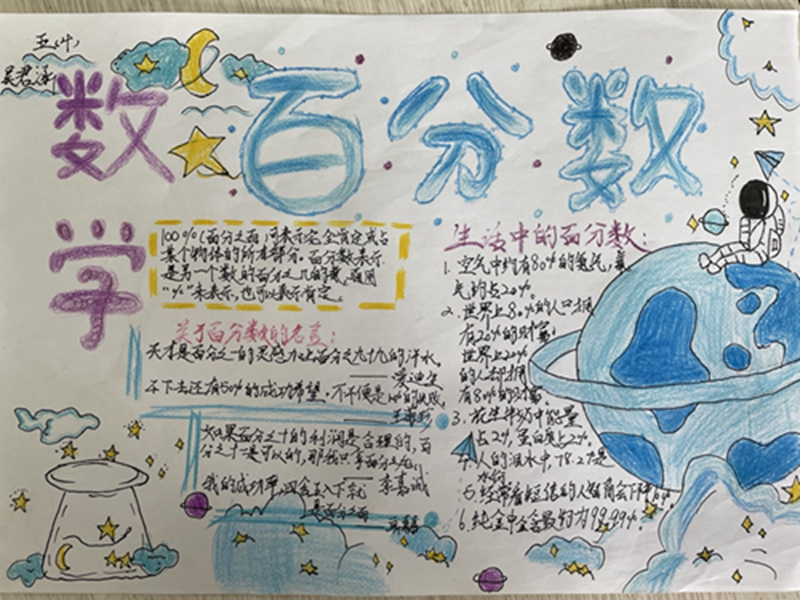 五(叶)
吴君泽
数学
百分数
100%(百分之百)可表示完全肯定或占
某个物体的所有部分。百分数表示
是另一个数的百分之几的数,通用
“%”来表示,也可以表示肯定。
关于百分数的名言:
天才是百分之一的灵感加上百分之九十九的汗水。
——爱迪生
不下去还有50%的成功希望,不
如果百分之十的利润是合理的,百
分之十一是可以的,那我只拿百分之九。
——李嘉诚
我的成功率四舍五入下就
是百分之百
生活中的百分数:
1.空气中约有80%的氮气,氧
气约占20%。
2.世界上80%的人口拥
有20%的财富;
世界上20%
的人却拥
有80%的财富。
3.花生
占2%,蛋白质占2%。
4.人的泪水中,78.2%是
水份
5.经常看短信的人智商会下降10%
6.纯金中含金最约为99.99%。